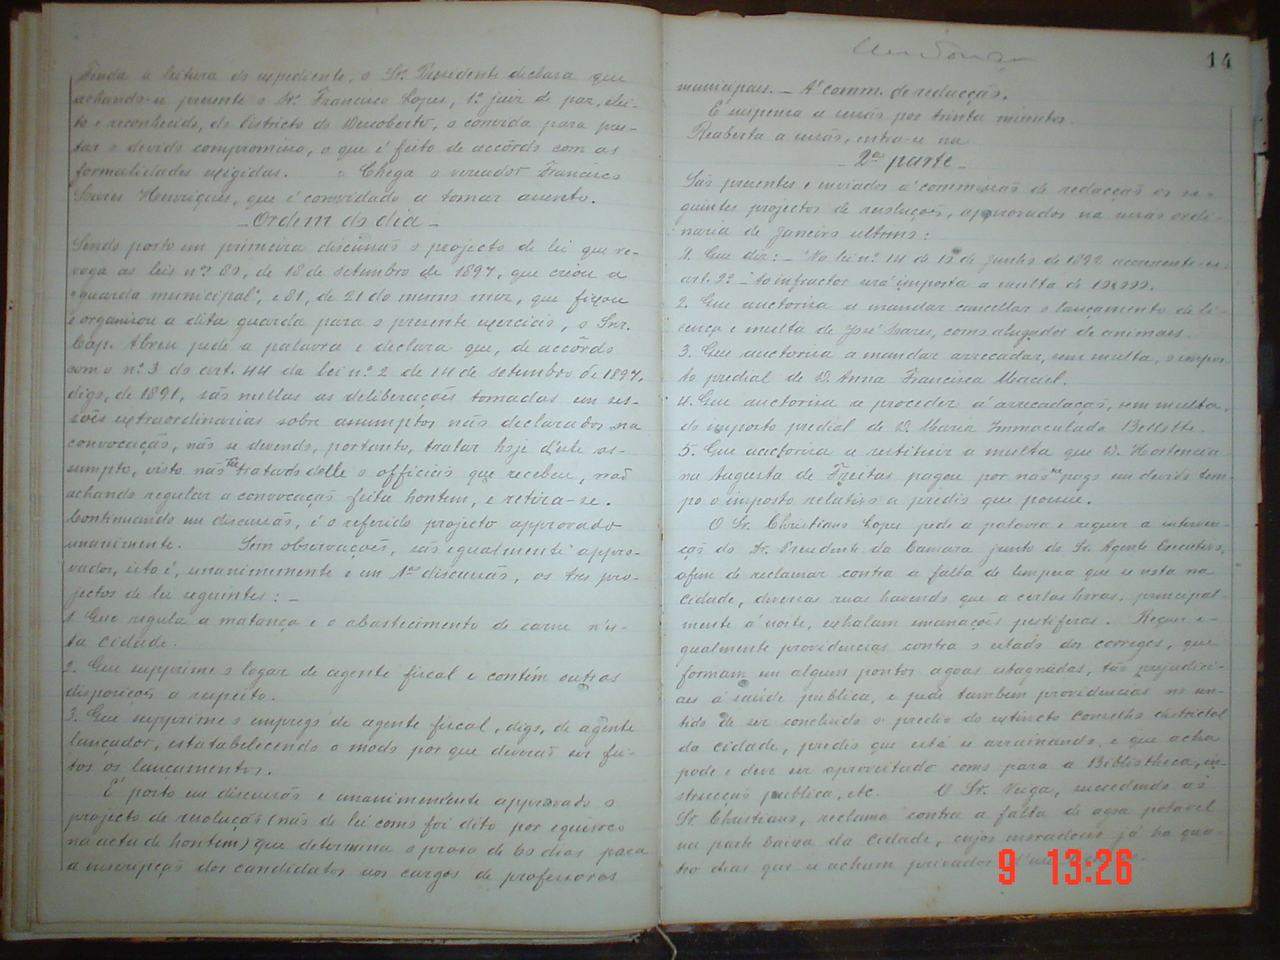 Finda a leitura do expediente, o Sr. Presidente declara que
achando-se presente o Sr. Francisco Lopes, 1º juiz de paz, elei-
to e reconhecido, do districto do Descoberto, o convida para pres-
tar o devido compromisso, o que é feito de accôrdo com as
formalidades exigidas. Chega o vereador Francisco
Soares Henriques, que é convidado a tomar assento.
- Ordem do dia -
Sendo posto em primeira discussão o projecto de lei que re-
voga as leis nº 80, de 18 de setembro de 1897, que creou a
"guarda municipal", e 81, de 21 do mesmo mez, que fixou
e organisou a dita guarda para o presente exercicio, o Snr.
Cap. Abreu pede a palavra e declara que, de accôrdo
com o nº 3 do art. 44 da lei nº 2 de 14 de setembro de 1897,
digo, de 1891, são nullas as deliberações tomadas em ses-
sões extraordinarias sobre assumptos não declarados na
convocação, não se devendo, portanto, tratar hoje d'este as-
sumpto, visto não ter tratado delle o officio que recebeu, não
achando regular a convocação feita hontem, e retira-se.
Continuando em discussão, é o referido projecto approvado
unanimente. Sem observações, são egualmente appro-
vados, isto é, unanimemente e em 1ª discussão, os tres pro-
jectos de lei seguintes: -
1. Que regula a matança e o abastecimento de carne n'es-
ta cidade.
2. Que supprime o logar de agente fiscal e contém outras
disposições a respeito.
3. Que supprime o emprego de agente fiscal, digo, de agente
lançador, estatabelecendo o modo por que deverão ser fei-
tos os lançamentos.
É posto em discussão e unanimemente approvado o
projecto de resolução (não de lei como foi dito por equivoco
na acta de hontem) que determina o praso de 60 dias para
a inscripção dos candidatos aos cargos de professores
14
municipaes. - Á comm. de redacção.
É suspensa a sessão por trinta minutos.
Reaberta a sessão, entra-se na
- 2ª parte -
São presentes e enviados á commissão de redacção os se-
guintes projectos de resoluções, approvados na sessão ordi-
naria de Janeiro ultimo:
1. Que diz: - Na lei nº 14 de 15 de junho de 1892 accrescente-se:
art. 2º - Ao infractor será imposta a multa de
2. Que auctorisa a mandar cancellar o lançamento de li-
cença e multa de José Soares, como alugador de animaes.
3. Que auctorisa a mandar arrecadar, sem multa, o impos-
to predial de D. Anna Francisca Maciel.
4. Que auctorisa a proceder á arrecadação, sem multa,
do imposto predial de D. Maria Immaculada Bellotte.
5. Que auctorisa a restituir a multa que D. Hortencia
na Augusta de Freitas pagou por não ter pago em devido tem-
po o imposto relativo a predio que possue.
O Sr. Christiano Lopes pede a palavra e requer a interven-
ção do Sr. Presidente da Camara junto do Sr. Agente Executivo,
afim de reclamar contra a falta de limpeza que se nota na
cidade, diversas ruas havendo que a certas horas, principal-
mente á noite, exhalam emanações pestiferas. Requer e-
gualmente providencias contra o estado dos corregos, que
formam em alguns pontos agoas estagnadas, tão prejudici-
aes á saúde publica, e pede tambem providencias no sen-
tido de ser concluido o predio do extincto Conselho districtal
da cidade, predio que está se arruinando, e que acha
pode e deve ser aproveitado como para a Bibliotheca, in-
strucção publica, etc. O Sr. Veiga, succedendo ao
Sr. Christiano, reclama contra a falta de agoa potavel
na parte baixa da cidade, cujos moradores já ha qua-
tro dias que se acham privados
9 13:26